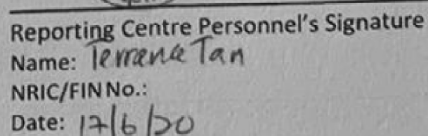 Reporting Centre Personnel's Signature
Name: Terrance Tan
NRIC/FIN No.:
Date: 17/6/20